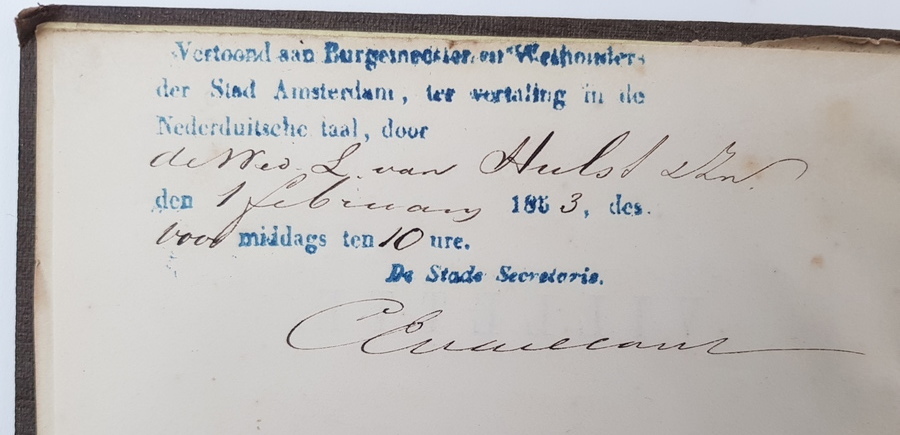 Vertoond aan Burgemeester en Wethouders
der Stad Amsterdam, ter vertaling in de
Nederduitsche taal, door
de Wed. L. van Hulst & Zn.
den 1 february 1863, des
voor middags ten 10 ure.
De Stads Secretaris.